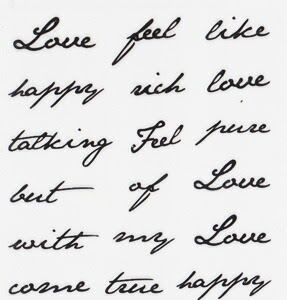 Love feel like
happy rich love
talking Feel pure
but of Love
with my Love
come true happy